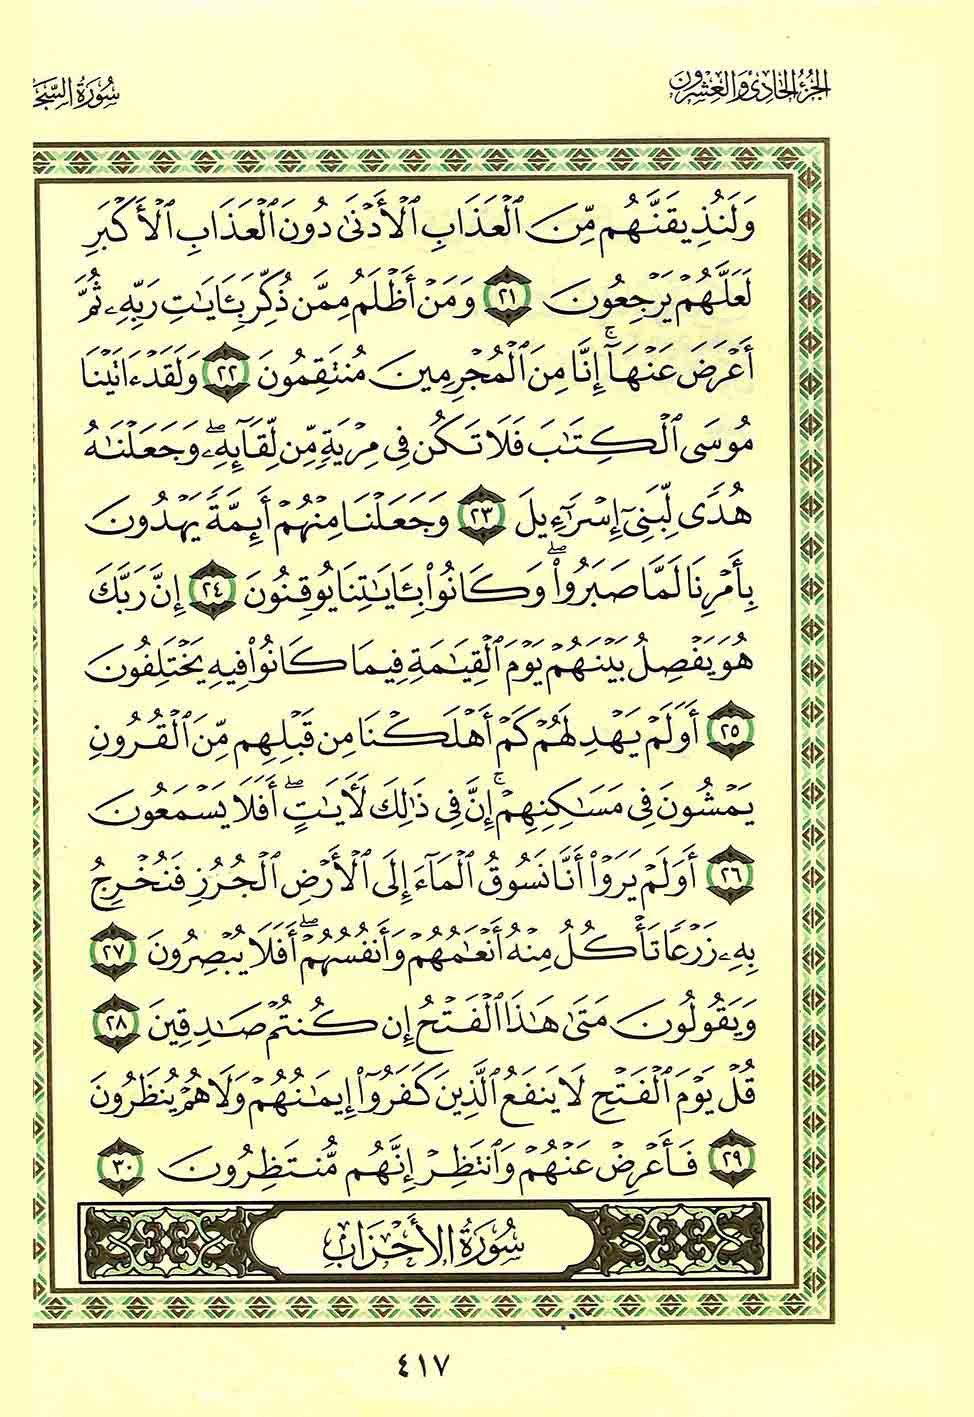 الجزء الحادي والعشرون
سورة السجد
وَلَنُذِيقَنَّهُم مِّنَ ٱلْعَذَابِ ٱلْأَدْنَىٰ دُونَ ٱلْعَذَابِ ٱلْأَكْبَرِ
لَعَلَّهُمْ يَرْجِعُونَ ٢١ وَمَنْ أَظْلَمُ مِمَّن ذُكِّرَ بِـَٔايَـٰتِ رَبِّهِۦ ثُمَّ
أَعْرَضَ عَنْهَآ ۚ إِنَّا مِنَ ٱلْمُجْرِمِينَ مُنتَقِمُونَ ٢٢ وَلَقَدْ ءَاتَيْنَا
مُوسَى ٱلْكِتَـٰبَ فَلَا تَكُن فِى مِرْيَةٍ مِّن لِّقَآئِهِۦ ۖ وَجَعَلْنَـٰهُ
هُدًى لِّبَنِىٓ إِسْرَٰٓءِيلَ ٢٣ وَجَعَلْنَا مِنْهُمْ أَئِمَّةً يَهْدُونَ
بِأَمْرِنَا لَمَّا صَبَرُوا۟ ۖ وَكَانُوا۟ بِـَٔايَـٰتِنَا يُوقِنُونَ ٢٤ إِنَّ رَبَّكَ
هُوَ يَفْصِلُ بَيْنَهُمْ يَوْمَ ٱلْقِيَـٰمَةِ فِيمَا كَانُوا۟ فِيهِ يَخْتَلِفُونَ
٢٥ أَوَلَمْ يَهْدِ لَهُمْ كَمْ أَهْلَكْنَا مِن قَبْلِهِم مِّنَ ٱلْقُرُونِ
يَمْشُونَ فِى مَسَـٰكِنِهِمْ ۚ إِنَّ فِى ذَٰلِكَ لَـَٔايَـٰتٍ ۖ أَفَلَا يَسْمَعُونَ
٢٦ أَوَلَمْ يَرَوْا۟ أَنَّا نَسُوقُ ٱلْمَآءَ إِلَى ٱلْأَرْضِ ٱلْجُرُزِ فَنُخْرِجُ
بِهِۦ زَرْعًا تَأْكُلُ مِنْهُ أَنْعَـٰمُهُمْ وَأَنفُسُهُمْ ۖ أَفَلَا يُبْصِرُونَ ٢٧
وَيَقُولُونَ مَتَىٰ هَـٰذَا ٱلْفَتْحُ إِن كُنتُمْ صَـٰدِقِينَ ٢٨
قُلْ يَوْمَ ٱلْفَتْحِ لَا يَنفَعُ ٱلَّذِينَ كَفَرُوٓا۟ إِيمَـٰنُهُمْ وَلَا هُمْ يُنظَرُونَ
٢٩ فَأَعْرِضْ عَنْهُمْ وَٱنتَظِرْ إِنَّهُم مُّنتَظِرُونَ ٣٠
سُورَةُ الأَحْزَابِ
٤١٧